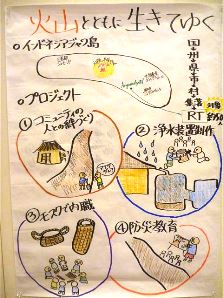 火山とともに生きてゆく
○インドネシアジャワ島
国・州・県・市・村
集落
RT
○プロジェクト
①コミュニティの
人との絆づくり
②浄水装置制作
③モスクで内職
④防災教育